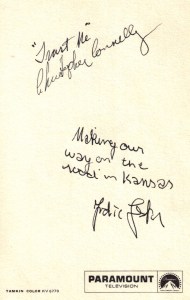 "Trust Me"
Christopher Connelly
Making our
way on the
road in Kansas
Jodie Foster
TAMKIN COLOR P/V-5770
PARAMOUNT
TELEVISION